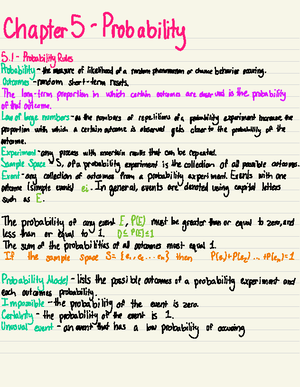 Chapter 5 - Probability
5.1 - Probability Rules
Probability - the measure of likelihood of a random phenomenon or chance behavior occuring.
Outcomes - random short-term results.
The long-term proportion in which certain outcomes are observed is the probability
of that outcome.
Law of large numbers - as the numbers of repetitions of a probability experiment increase the
proportion with which a certain outcome is observed gets closer to the probability of the
outcome.
Experiment - any process with uncertain results that can be repeated.
Sample Space - S, of a probability experiment is the collection of all possible outcomes.
Event - any collection of outcomes from a probability experiment. Events with one
outcome (simple events) ei. In general, events are denoted using capital letters
such as E.
The probability of any event E, P(E) must be greater than or equal to zero, and
less than or equal to 1. 0≤P(E)≤1
The sum of the probabilities of all outcomes must equal 1.
If the sample space S= {e₁, e₂ ... eₙ} then P(e₁)+P(e₂) ... +P(eₙ)=1
Probability Model - lists the possible outcomes of a probability experiment and
each outcomes probability.
Impossible - the probability of the event is zero.
Certainty - the probability of the event is 1.
Unusual event - an event that has a low probability of occuring